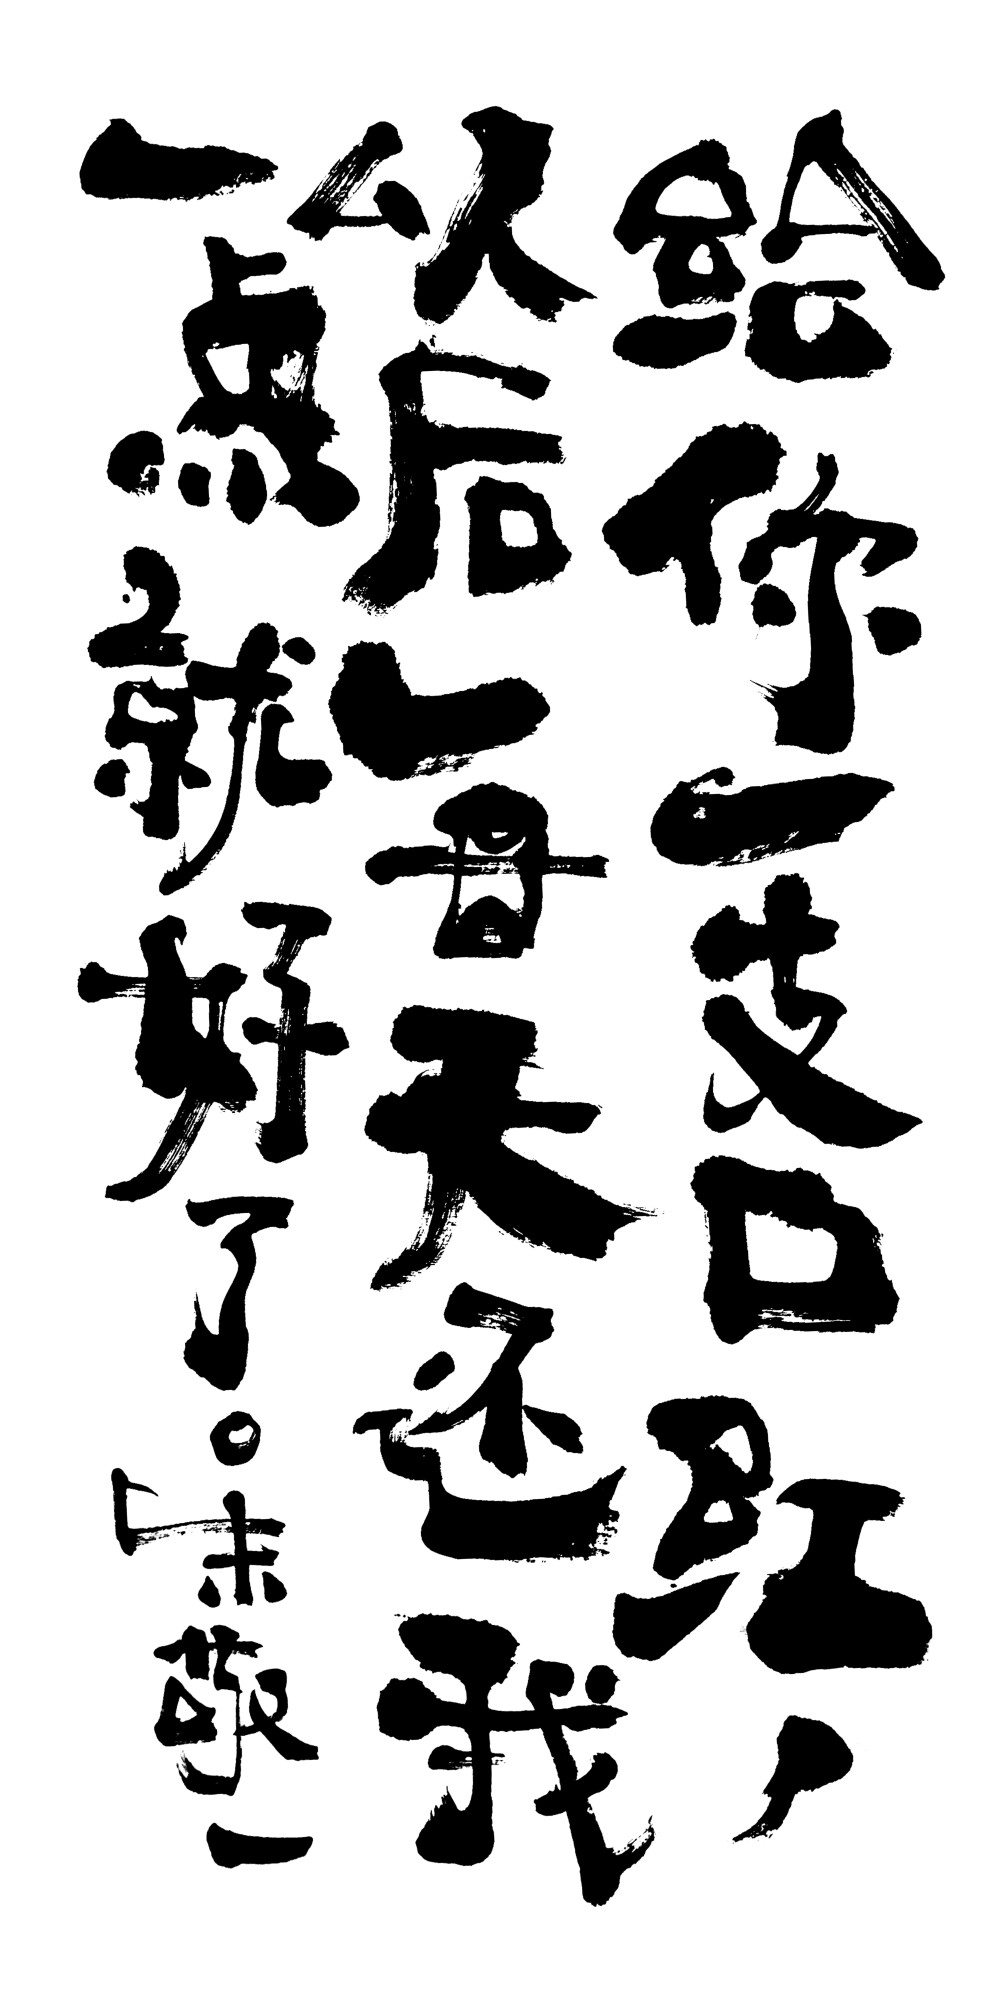 给你一支口红，
以后每天还我
一点就好了。朱敬一